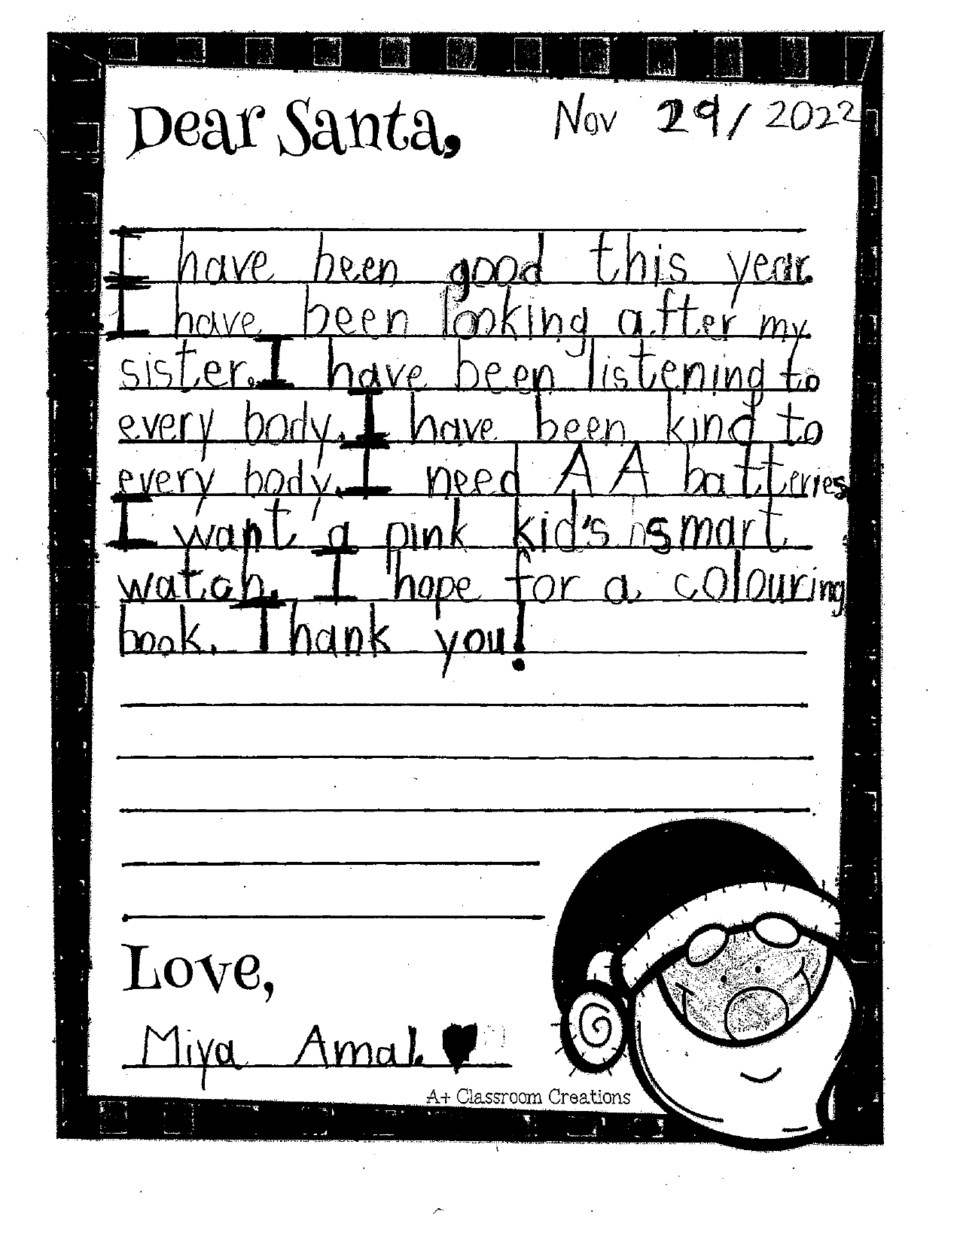 Dear Santa, Nov 29/2022
I have been good this year.
I have been looking after my
sister. I have been listening to
every body. I have been kind to
every body. I need AA batteries
I want a pink kid's smart
watch. I hope for a colouring
book. Thank you!
Love,
Miya Amal.
A+ Classroom Creations